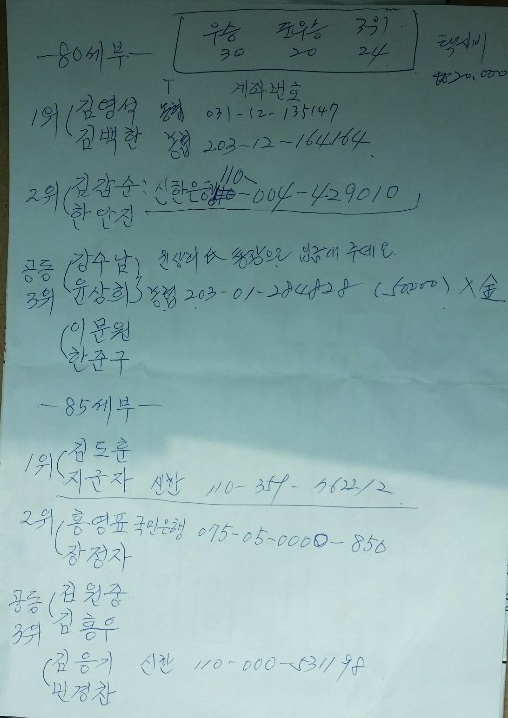 우승 준우승 3위
30 20 24
-80세부-
택시비
20,000
계좌번호
1위 (김영석 농협 031-12-135147
김백한 농협 203-12-164164
2위 (김갑순: 신한은행 110-004-429010
한안진
공동 (강수남) 윤상희 氏 통장으로 입금해 주세요
3위 윤상희 농협 203-01-284828 (50000) X 金
(이문원
한준구
-85세부-
1위 (김도훈
지군자 신한 110-359-462212
2위 (홍영표 국민은행 075-05-0000-850
장정자
공동 (김원중
3위 김홍우
(김응기 신한 110-000-531198
민경찬